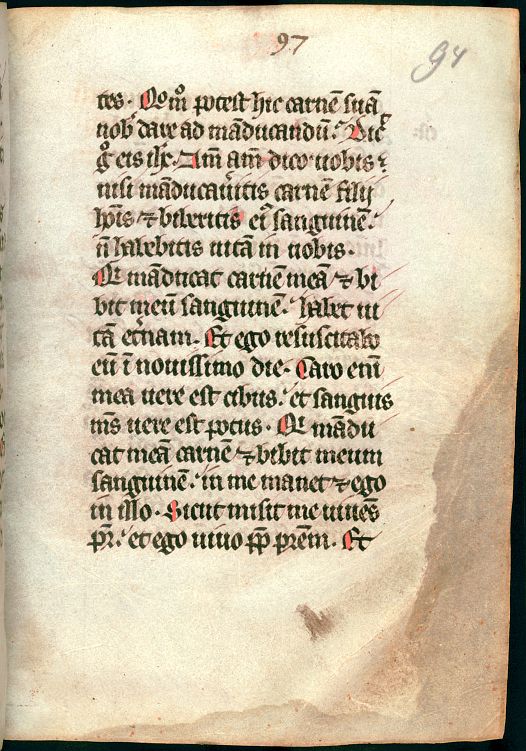 97
94
tes. Qͦm̊ potest hic carnē suā
nob̕ dare ad māducandū. Dix̾
g̊ eis ihc̄. Am̄ am̄ dico uobis:
nisi māducau̾itis carnē filij
hoīs ⁊ biberitis ei̾ sanguinē.
n̄ habebitis uitā in uobis.
Qi māducat carnē meā ⁊ bi
bit meū sanguinē. habet ui
tā et̾nam. Et ego resuscitabo
eū ī nouissimo die. Caro enī
mea uere est cibus. et sanguis
m̄s uere est potus. Qi mādu
cat meā carnē ⁊ bibit meum
sanguinē. in me manet ⁊ ego
in illo. Sicut misit me uiuēs
pr̄. et ego uiuo pp̄ prēm. Et